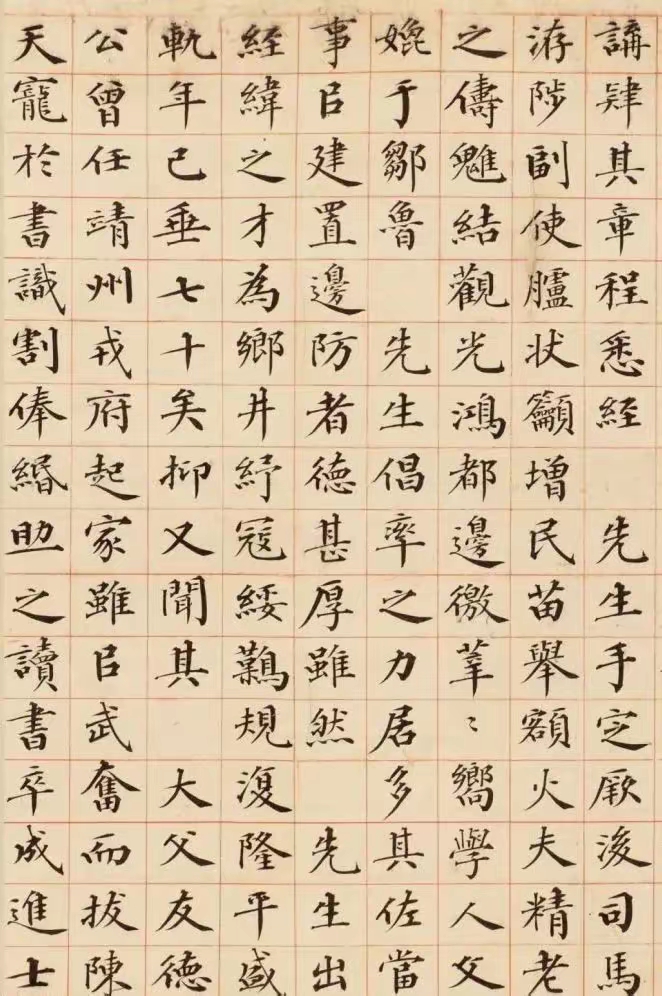 講肄其章程悉經 先生手定厥後司馬
洊陟副使臚状籲增民苗舉額火夫精老
之儔魋結觀光鴻都邊徼莘〻嚮學人父
娩于鄒魯 先生倡率之力居多其佐當
事㠯建置邊防者德甚厚雖然 先生出
經緯之才為鄉井紓寇綏𪄿規復隆平盛
軌年已垂七十矣抑又聞其 大父友德
公曾任靖州戎府起家雖㠯武奮而拔陳
天寵於書識割俸緡助之讀書卒成進士